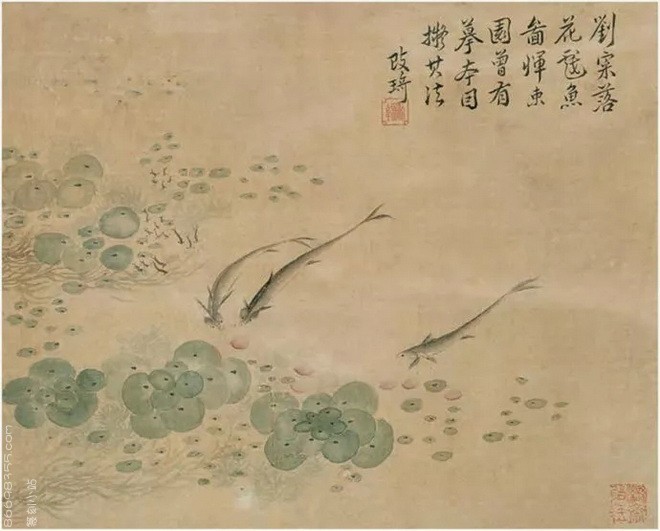 劉寀落
花戲魚
啚惲東
園曾有
摹本因
擬其法
改琦